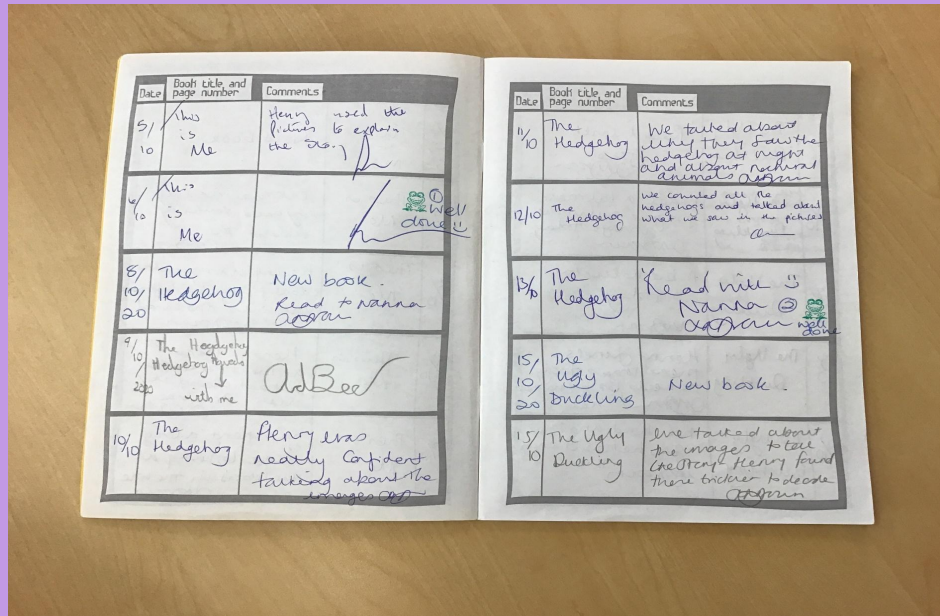 Date
Book title and
page number
Comments
5/
10
This
is
Me
Henry used the
pictures to explain
the
6/
10
This
is
Me
①
Well
done
8/
10/
20
The
Hedgehog
New book.
Read to Nanna
9/
10
/
2020
The Hegdgehog
Hedgehog
with me
10/
10
The
Hedgehog
Henry was
really Confident
talking about the
images
Date
Book title and
page number
Comments
11/
10
The
Hedgehog
We talked about
why they saw the
hedgehog at night
and about
animals
12/10
The
Hedgehog
We counted all the
hedgehogs and talked about
what we saw in the pictures
13/
10
The
Hedgehog
Read with
Nanna ②
well
done
15/
10/
20
The
Ugly
Duckling
New book.
15/
10
The Ugly
Duckling
We talked about
the images to tell
the story. Henry found
these trickier to decode